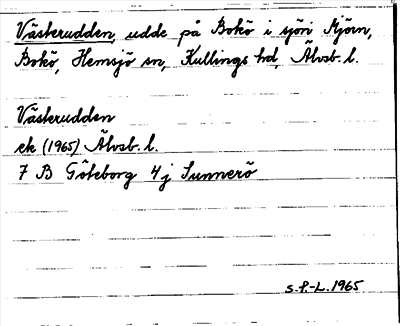 Västerudden, udde på Bokö i sjön Mjörn,
Bokö, Hemsjö sn, Kullings hd, Älvsb. l.
Västerudden
ek (1965) Älvsb. l.
7 B Göteborg 4j Sunnerö
S.F.-L. 1965